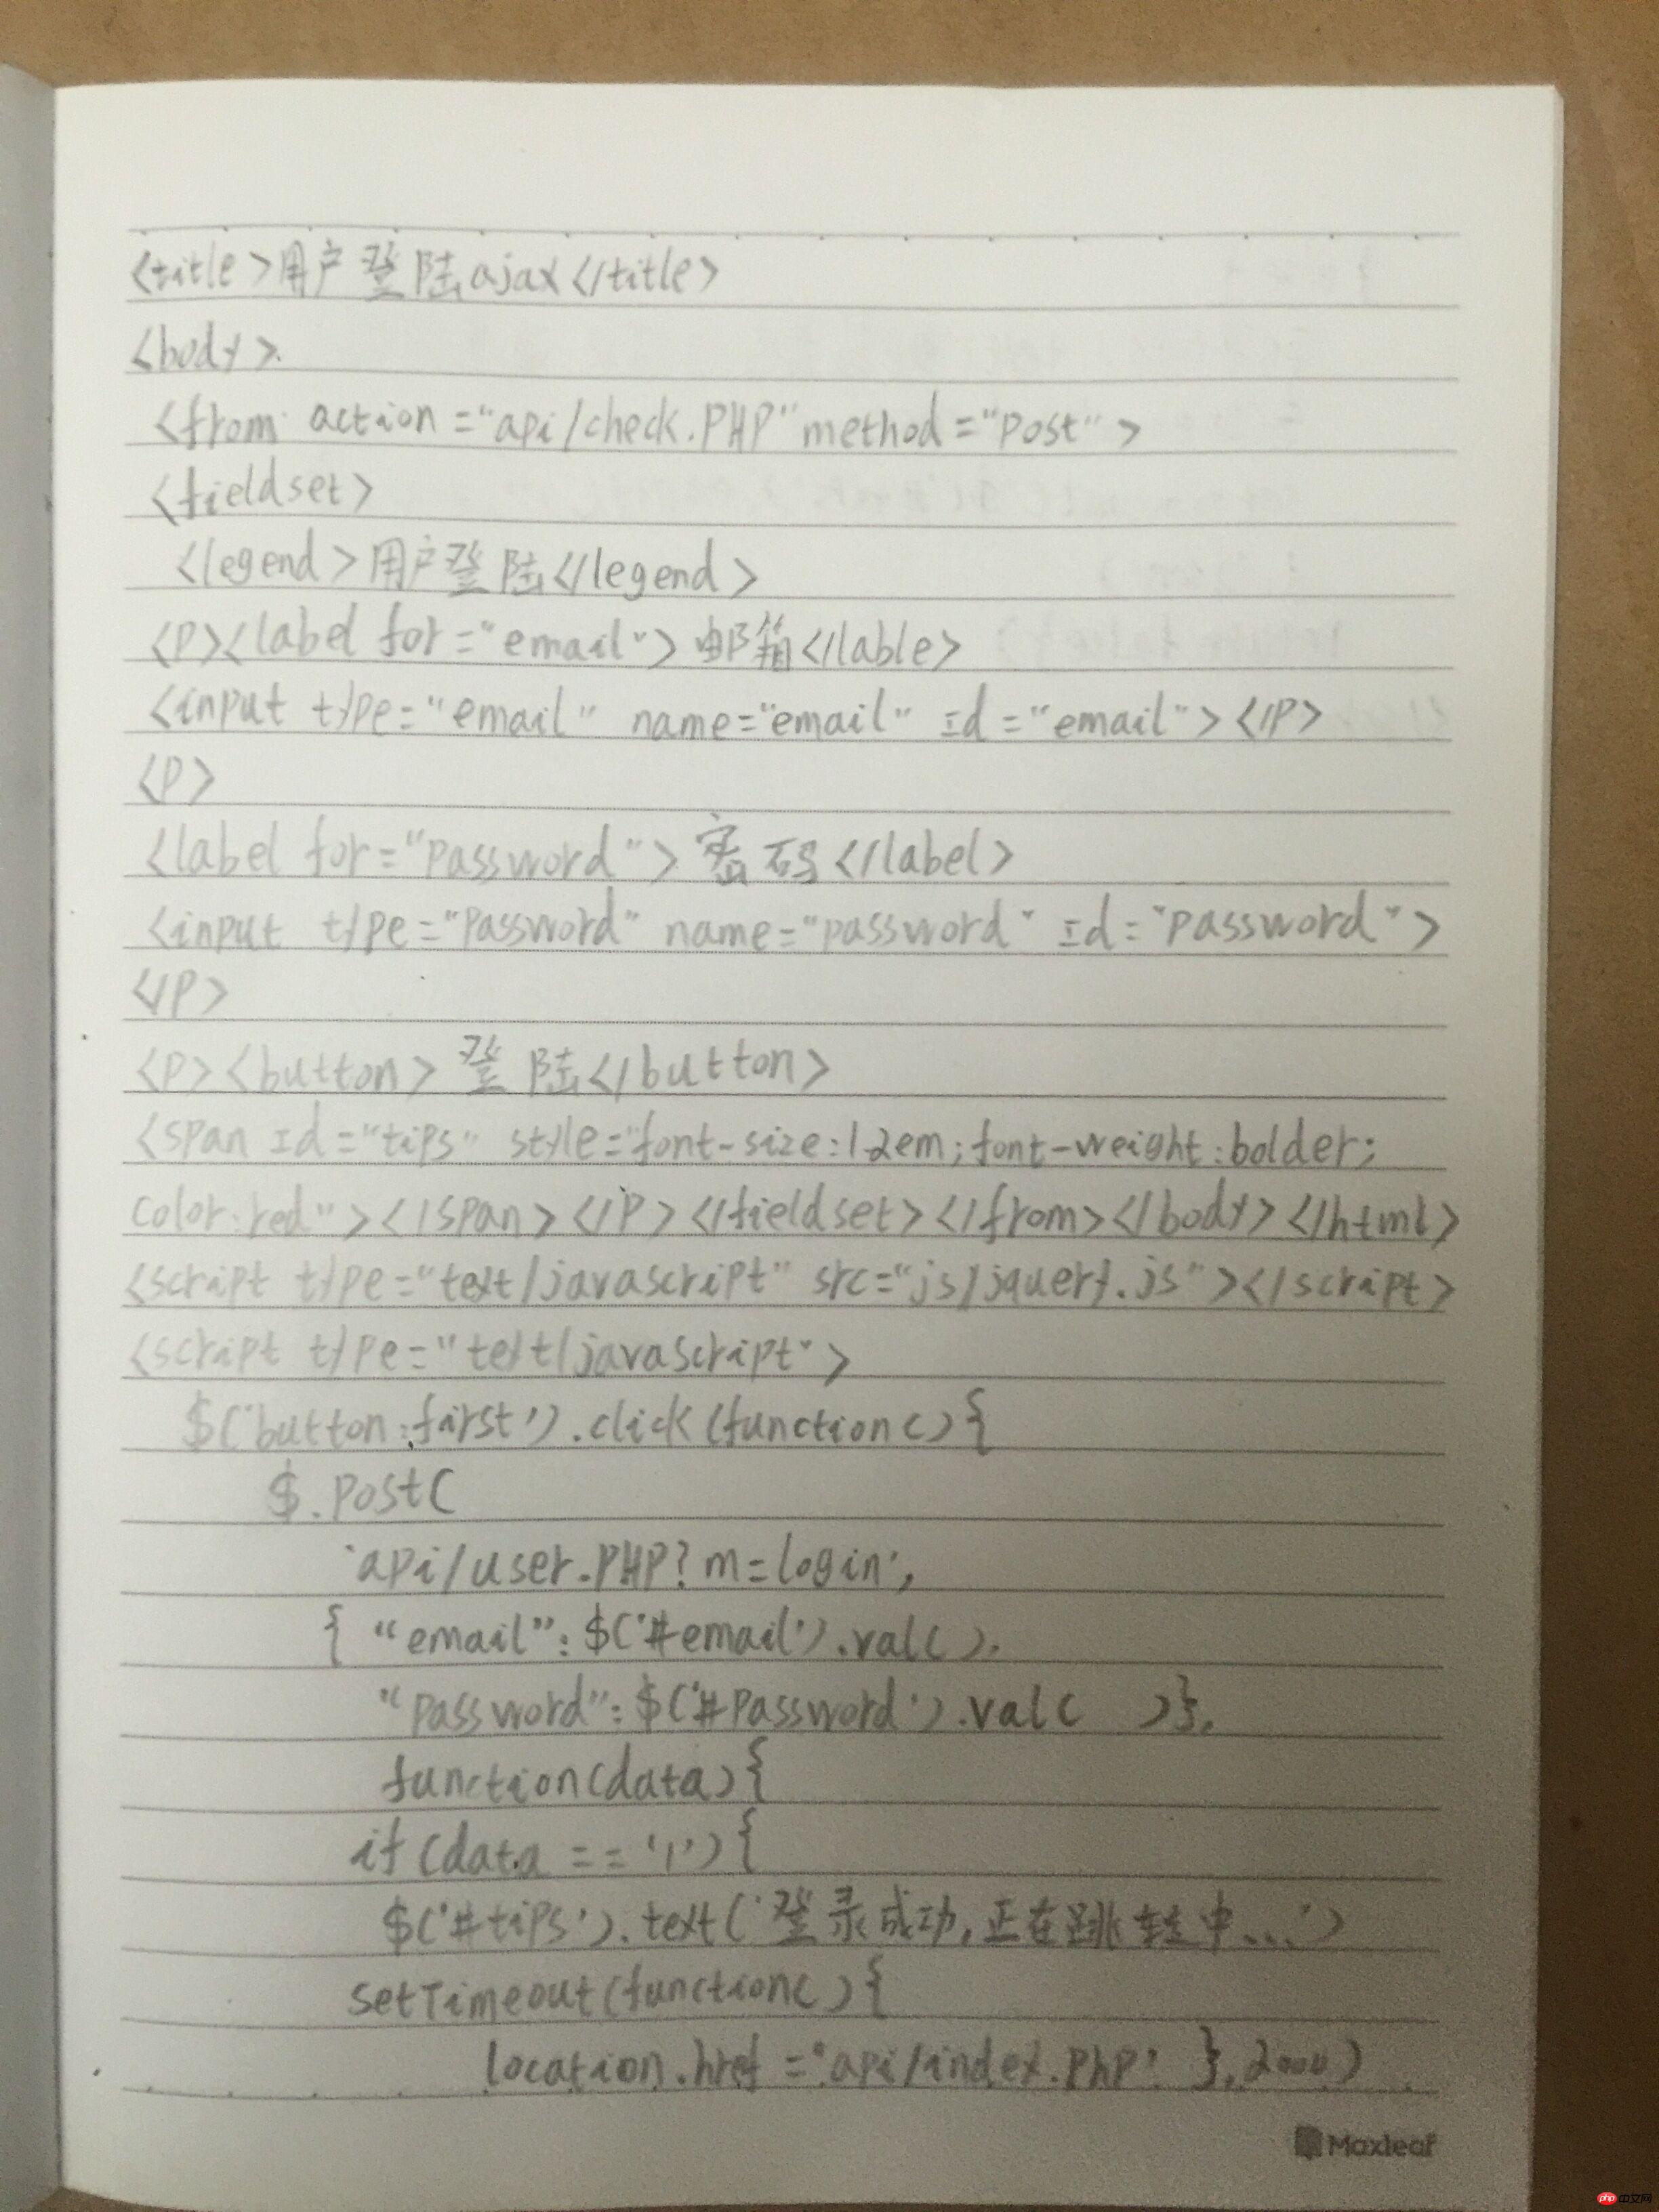 <title>用户登陆ajax</title>
<body>
<from action="api/check.PHP" method="post">
<fieldset>
</legend>用户登陆</legend>
<P><label for="email">邮箱</lable>
<input type="email" name="email" id="email"></P>
<P>
<label for="password">密码</label>
<input type="password" name="password" id="password">
</P>
<P><button>登陆</button>
<span id="tips" style="font-size:1.2em;font-weight:bolder;
color:red"></span></P></fieldset></from></body></html>
<script type="text/javascript" src="js/jquery.js"></script>
<script type="text/javascript">
$('button:first').click(function(){
$.post(
'api/user.PHP?m=login',
{ "email":$('#email').val(),
"password":$('#password').val( )},
function(data){
if(data == '1'){
$('#tips').text('登录成功,正在跳转中...')
setTimeout(function(){
location.href='api/index.php' },2000)
Maxleaf
php中文网